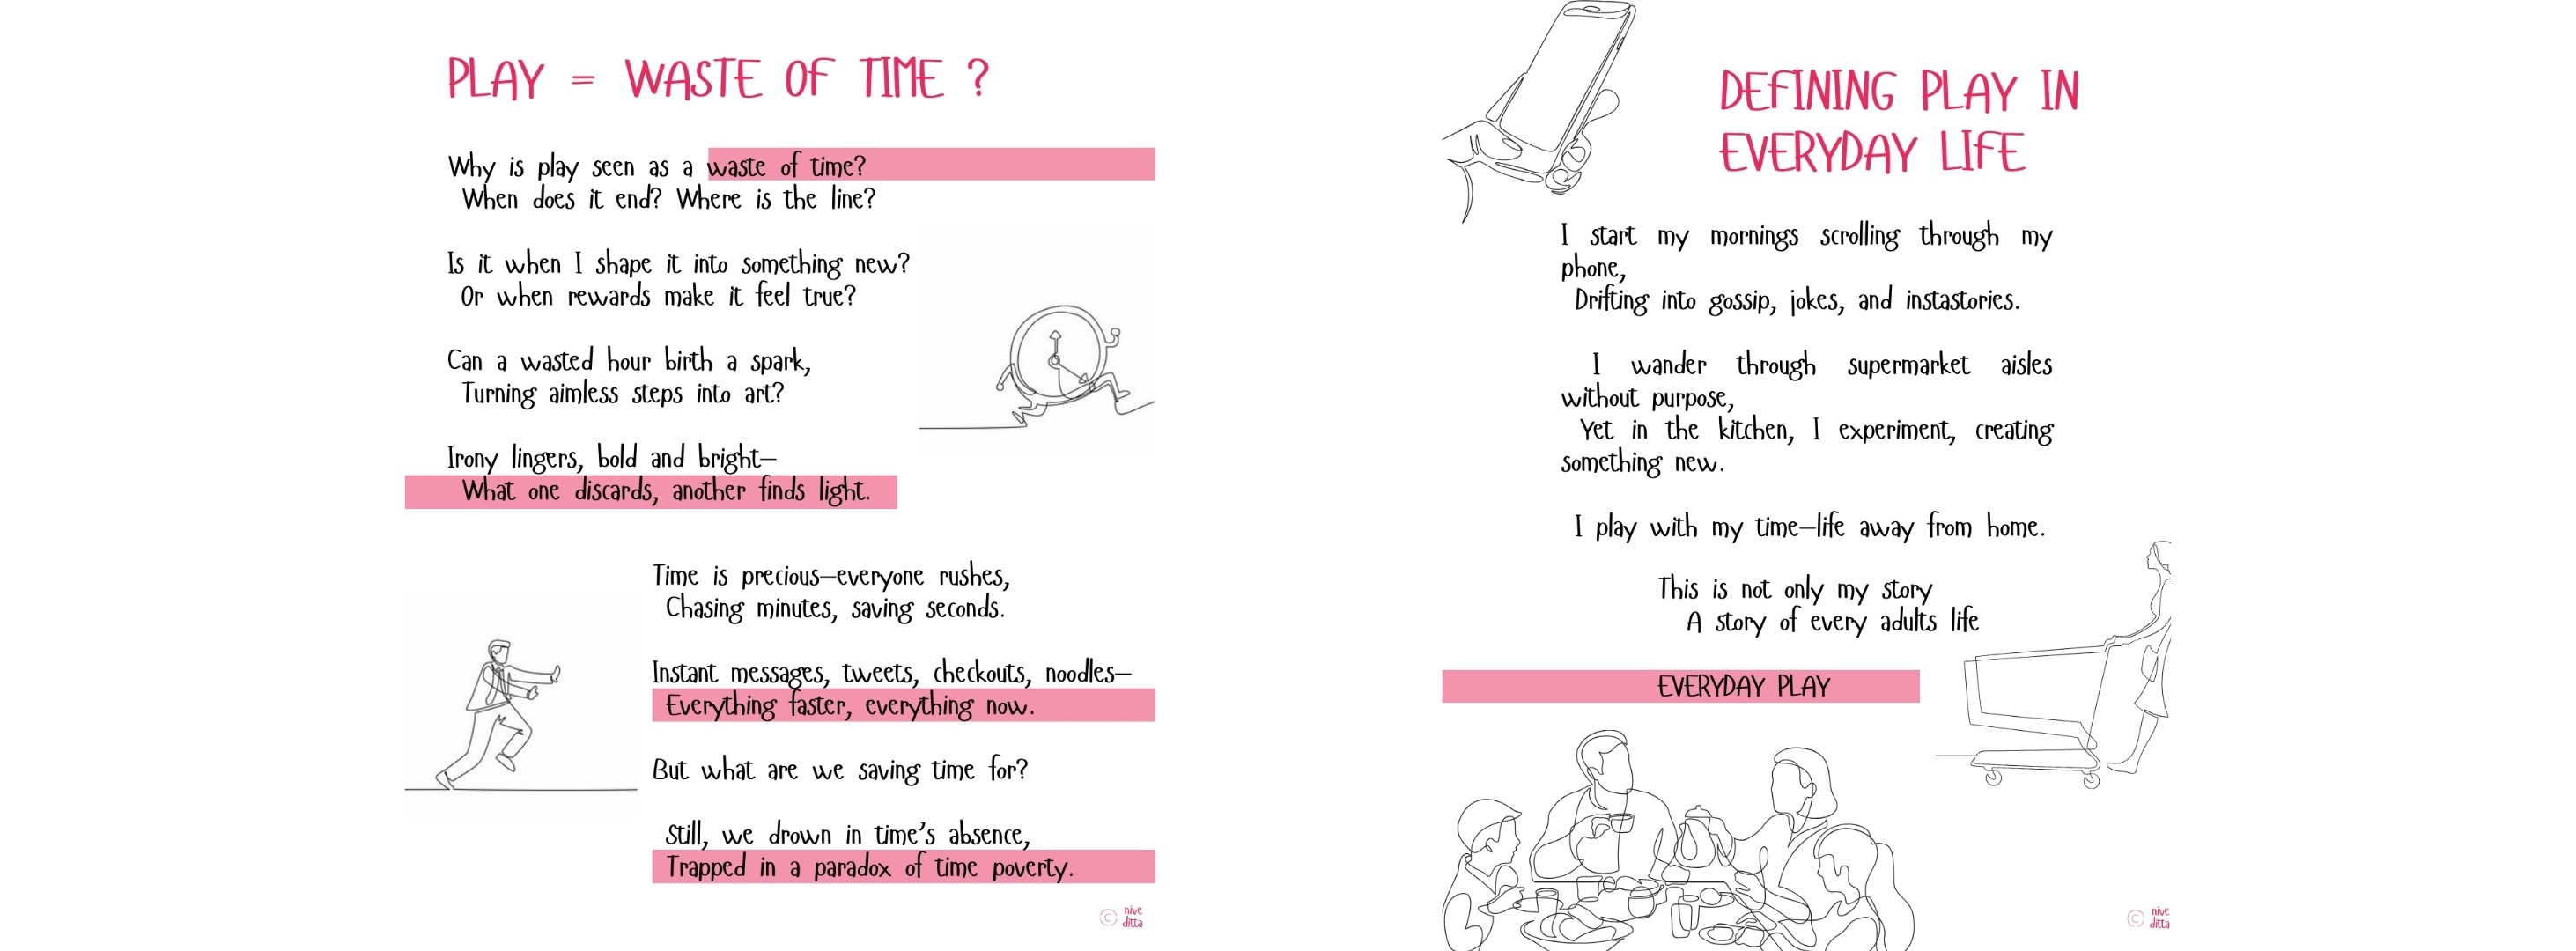 PLAY = WASTE OF TIME ?
Why is play seen as a waste of time?
When does it end? Where is the line?
Is it when I shape it into something new?
Or when rewards make it feel true?
Can a wasted hour birth a spark,
Turning aimless steps into art?
Irony lingers, bold and bright—
What one discards, another finds light.
Time is precious—everyone rushes,
Chasing minutes, saving seconds.
Instant messages, tweets, checkouts, noodles—
Everything faster, everything now.
But what are we saving time for?
Still, we drown in time's absence,
Trapped in a paradox of time poverty.
© nive
ditta
DEFINING PLAY IN
EVERYDAY LIFE
I start my mornings scrolling through my
phone,
Drifting into gossip, jokes, and instastories.
I wander through supermarket aisles
without purpose,
Yet in the kitchen, I experiment, creating
something new.
I play with my time—life away from home.
This is not only my story
A story of every adults life
EVERYDAY PLAY
© nive
ditta